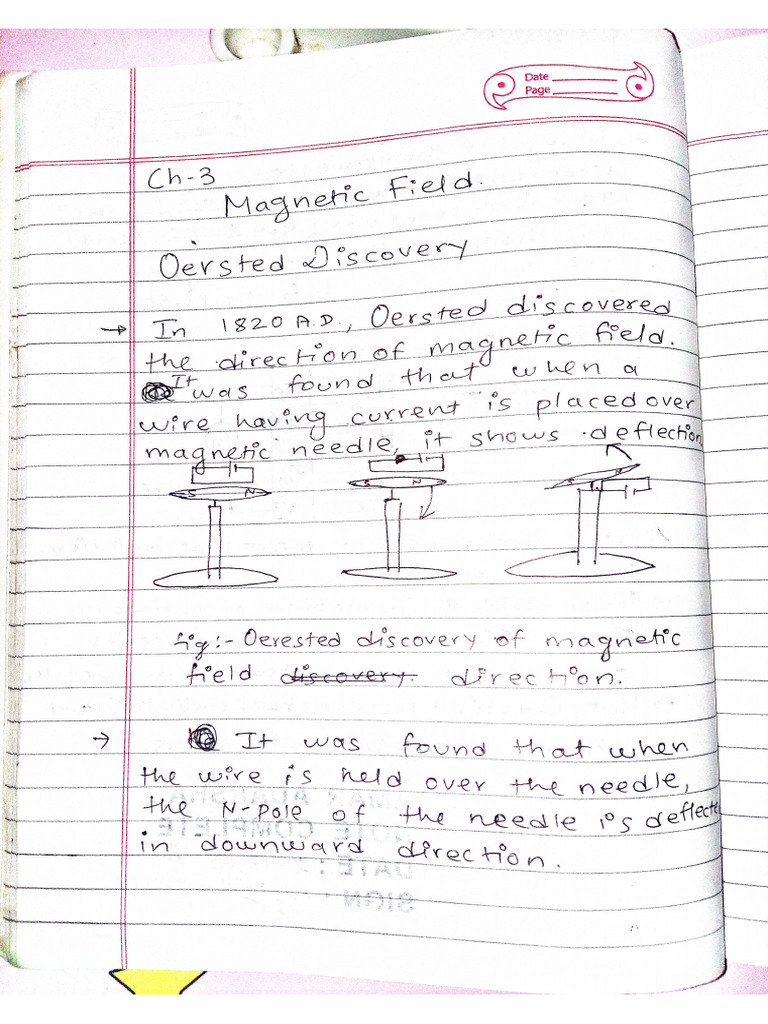 Date
Page
Ch-3
Magnetic Field.
Oersted Discovery
→ In 1820 A.D., Oersted discovered
the direction of magnetic field.
It was found that when a
wire having current is placed over
magnetic needle, it shows deflection
S N S N
fig:- Oerested discovery of magnetic
field discovery. direction.
→ It was found that when
the wire is held over the needle,
the N-pole of the needle is deflecte
in downward direction.
NOTE COMPLETE
DATE:
SIGN